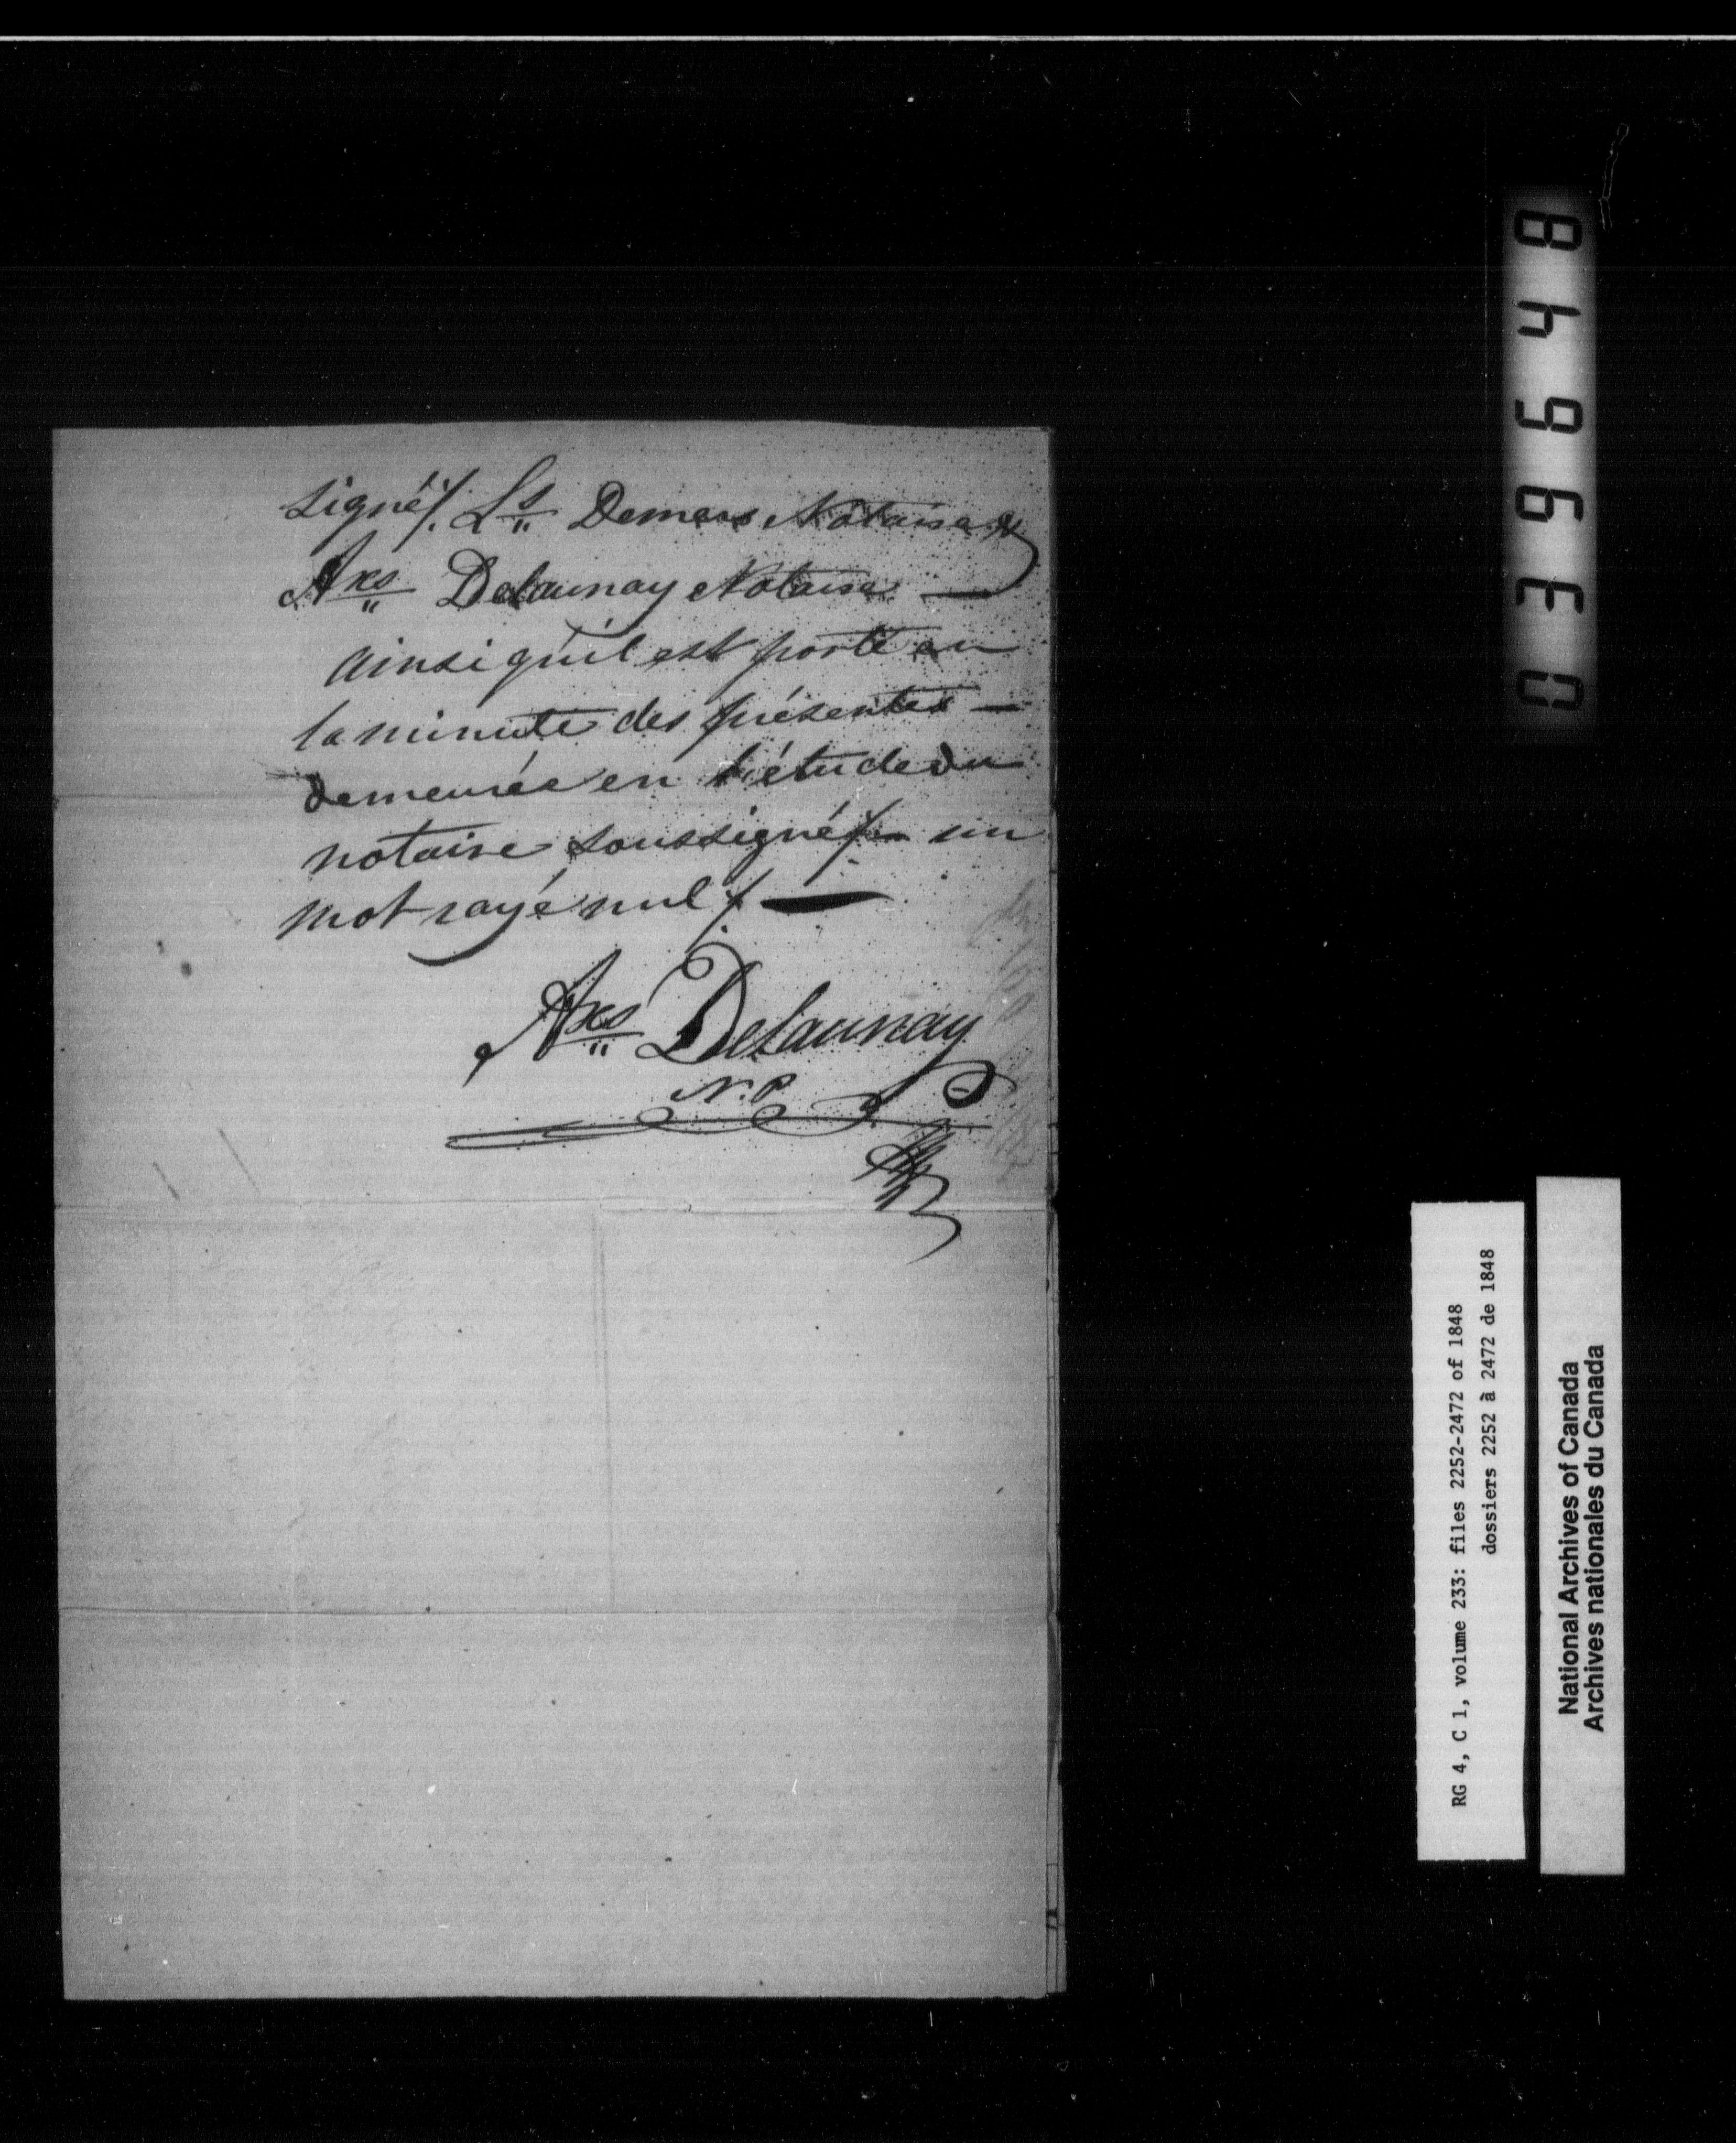 signé/. Ls Demers Notaire &
Axs Delaunay Notaire —
ainsi qu'il est porté en
la minute des présentes —
demeurée en l'étude du
notaire soussigné/. un
mot rayé nul/. —
Axs Delaunay
N.P
039648
RG 4, C 1, volume 233: files 2252-2472 of 1848
dossiers 2252 à 2472 de 1848
National Archives of Canada
Archives nationales du Canada